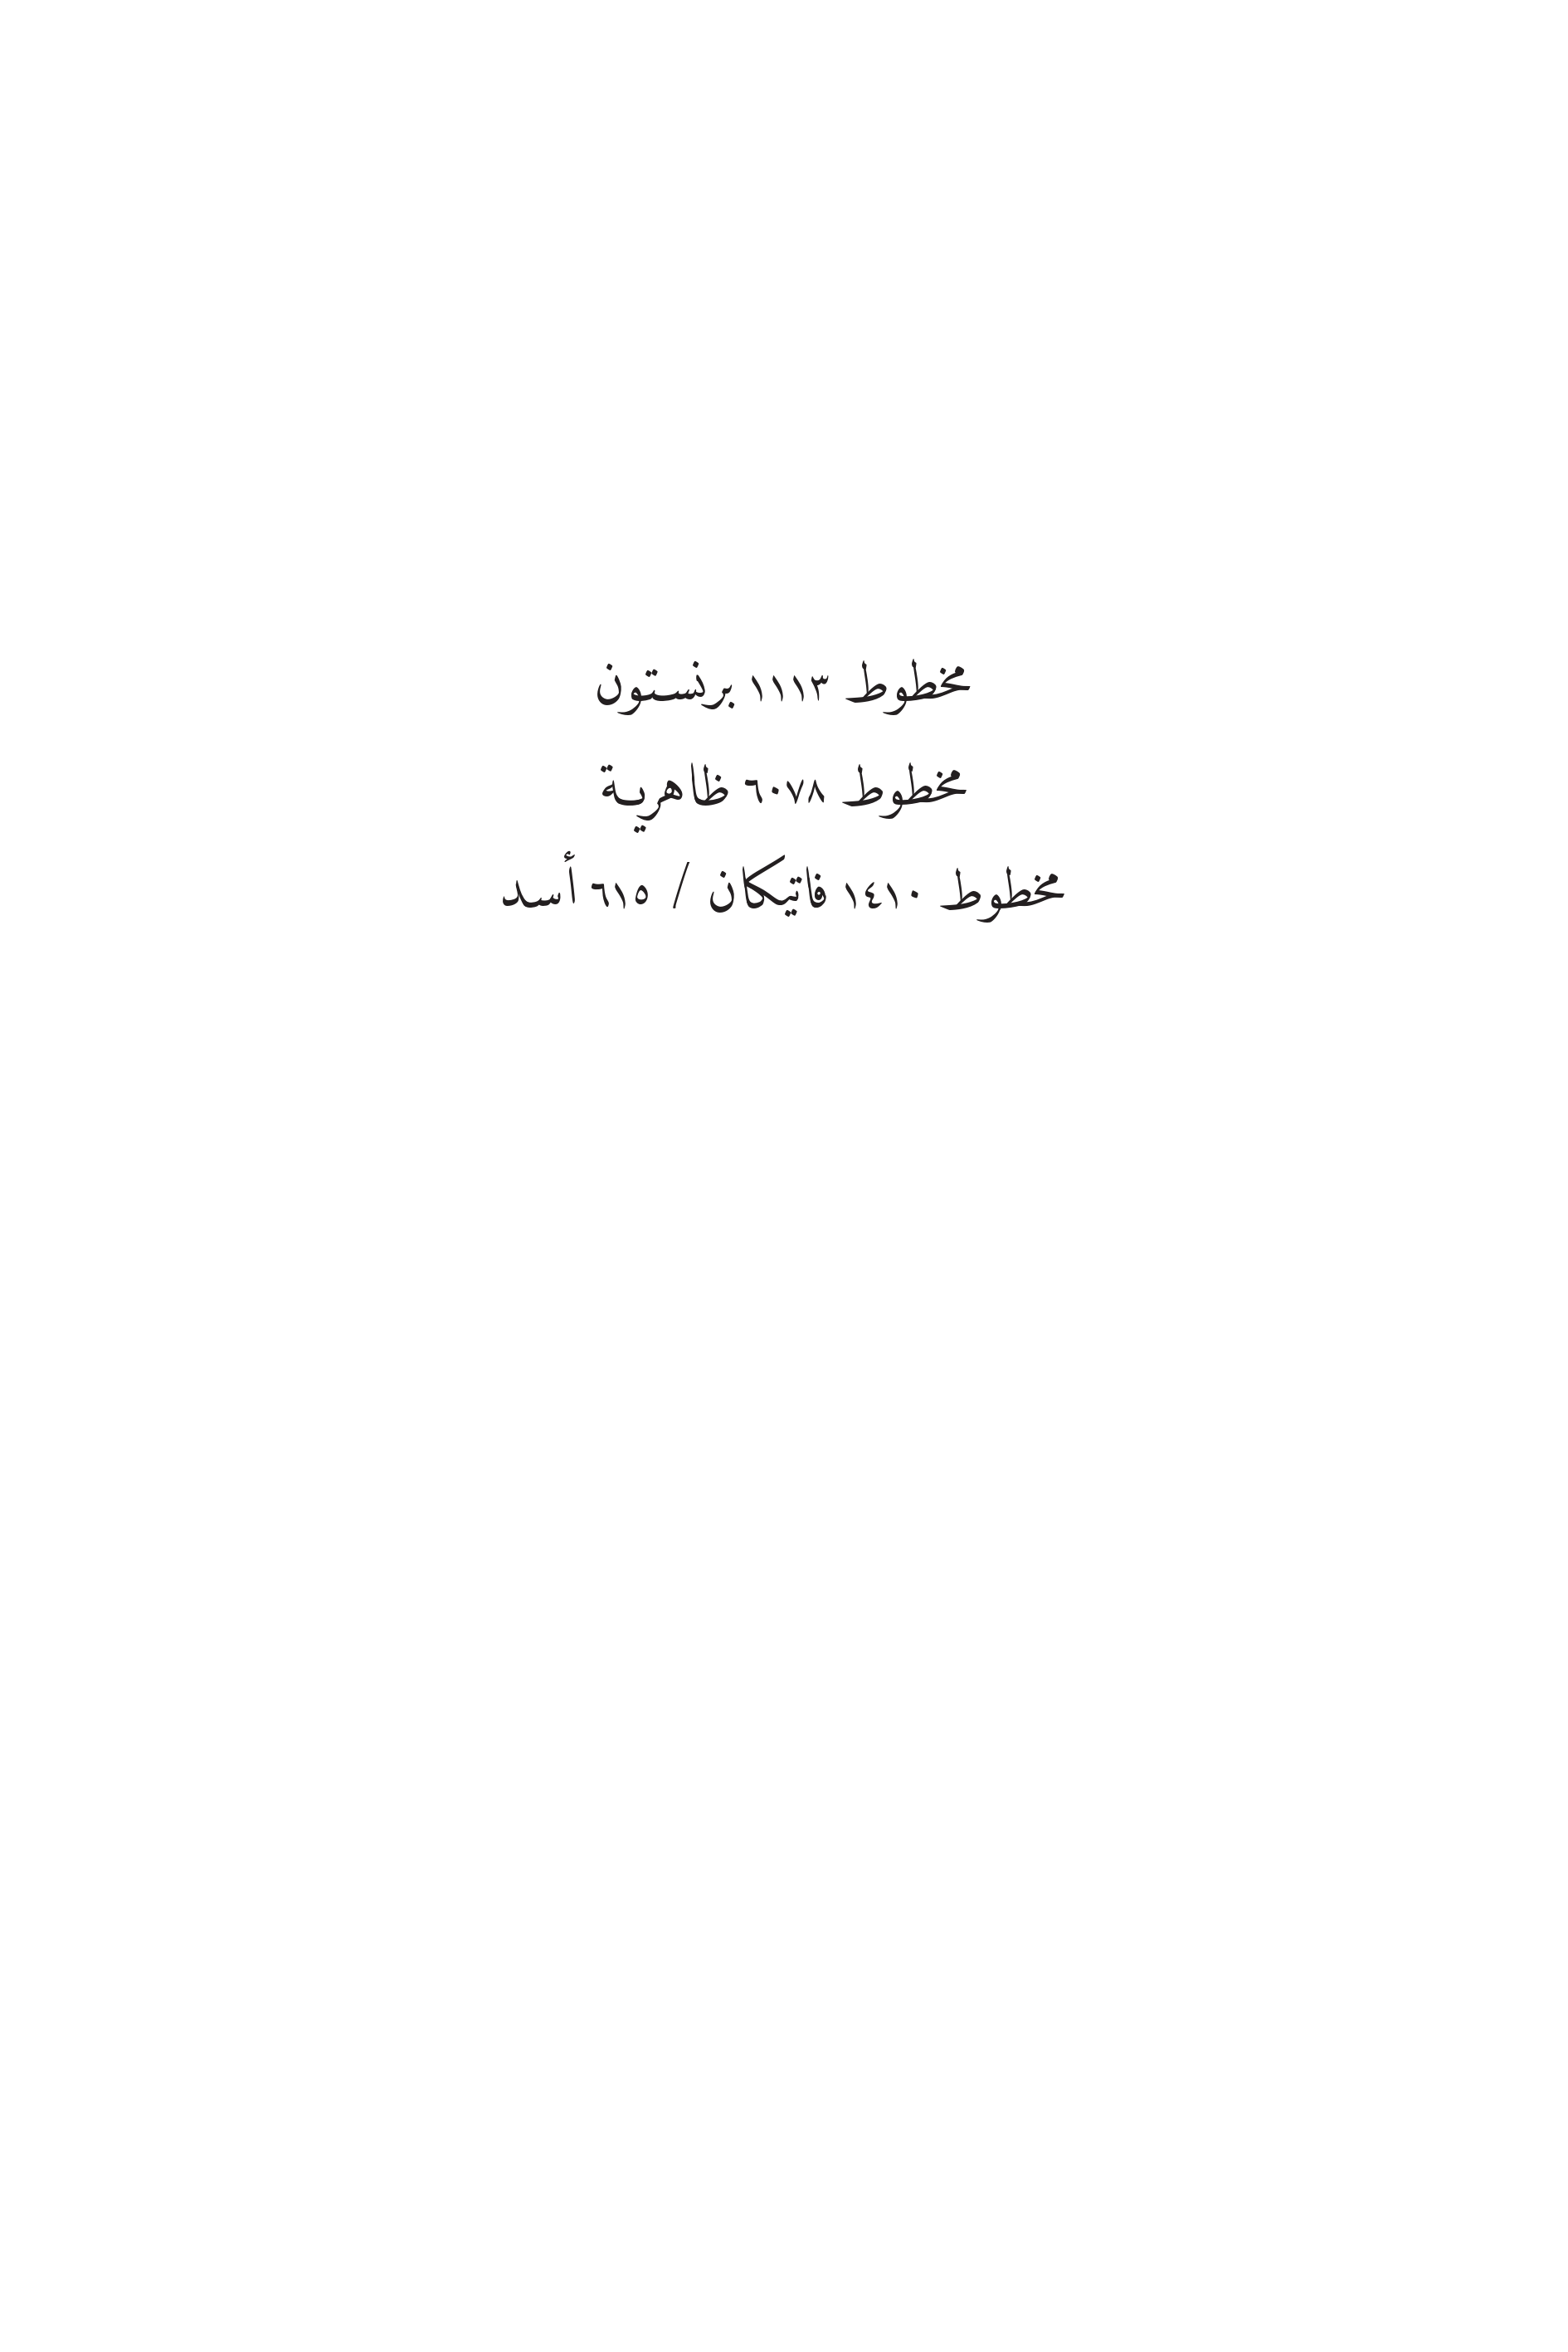 مخطوط ١١١٣ برنستون
مخطوط ٦٠٧٨ ظاهرية
مخطوط ١٤١٠ فاتيكان / ٦١٥ أسد